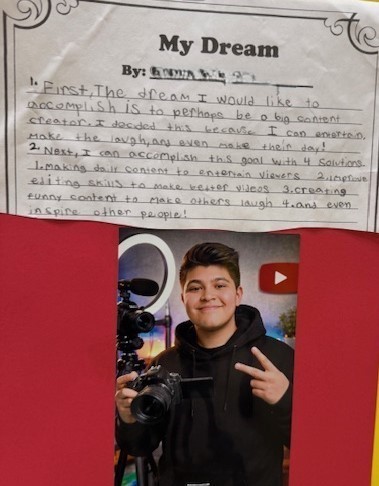 My Dream
By:
1. First, The dream I would like to
accomplish is to perhaps be a big content
creator. I decided this because I can entertain,
make the laugh, any even make their day!
2. Next, I can accomplish this goal with 4 solutions
1. making daily content to entertain viewers 2. improve
editing skills to make better videos 3. creating
funny content to make others laugh 4. and even
inspire other people!